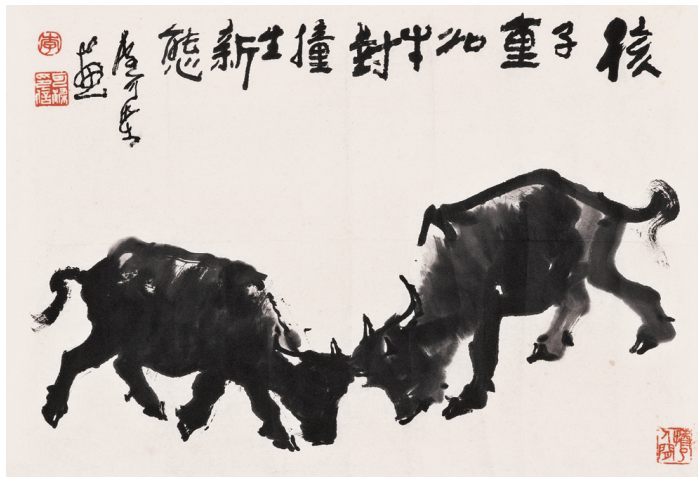 核子重如牛對撞生新態
可染
畫
李